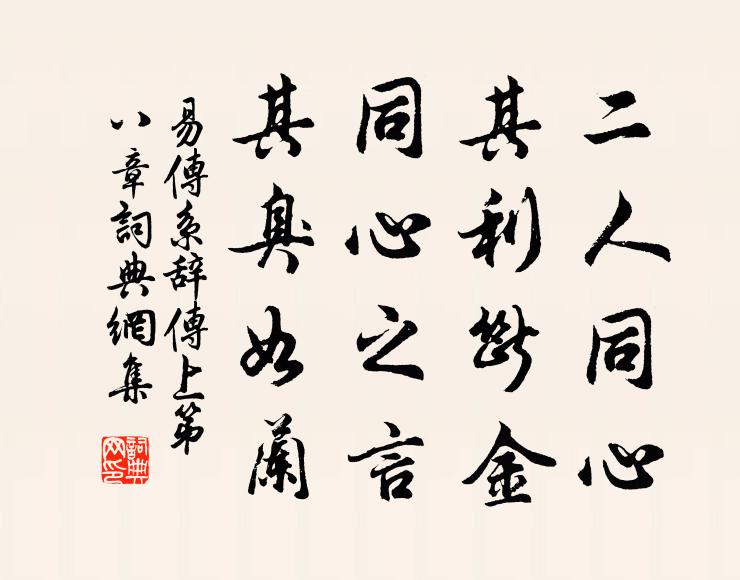 二人同心
其利斷金
同心之言
其臭如蘭
易傳系辞傳上第
八章詞典網集
詞典
网印